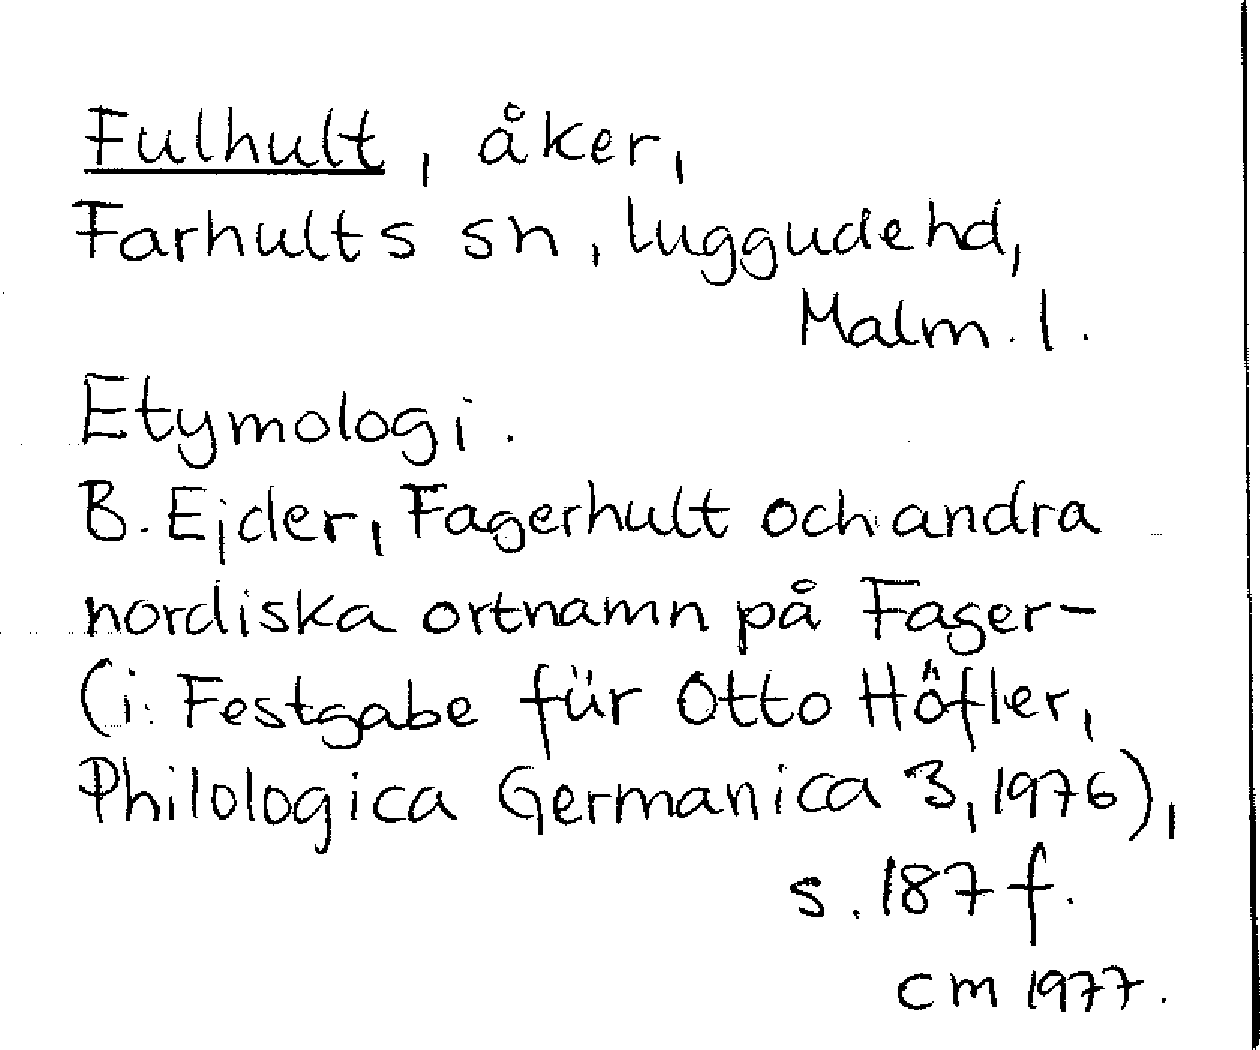 Fulhult, åker,
Farhults sn, Luggude hd,
Malm. l.
Etymologi.
B. Ejder, Fagerhult och andra
nordiska ortnamn på Fager-
(i: Festgabe für Otto Höfler,
Philologica Germanica 3, 1976),
s. 187 f.
CM 1977.